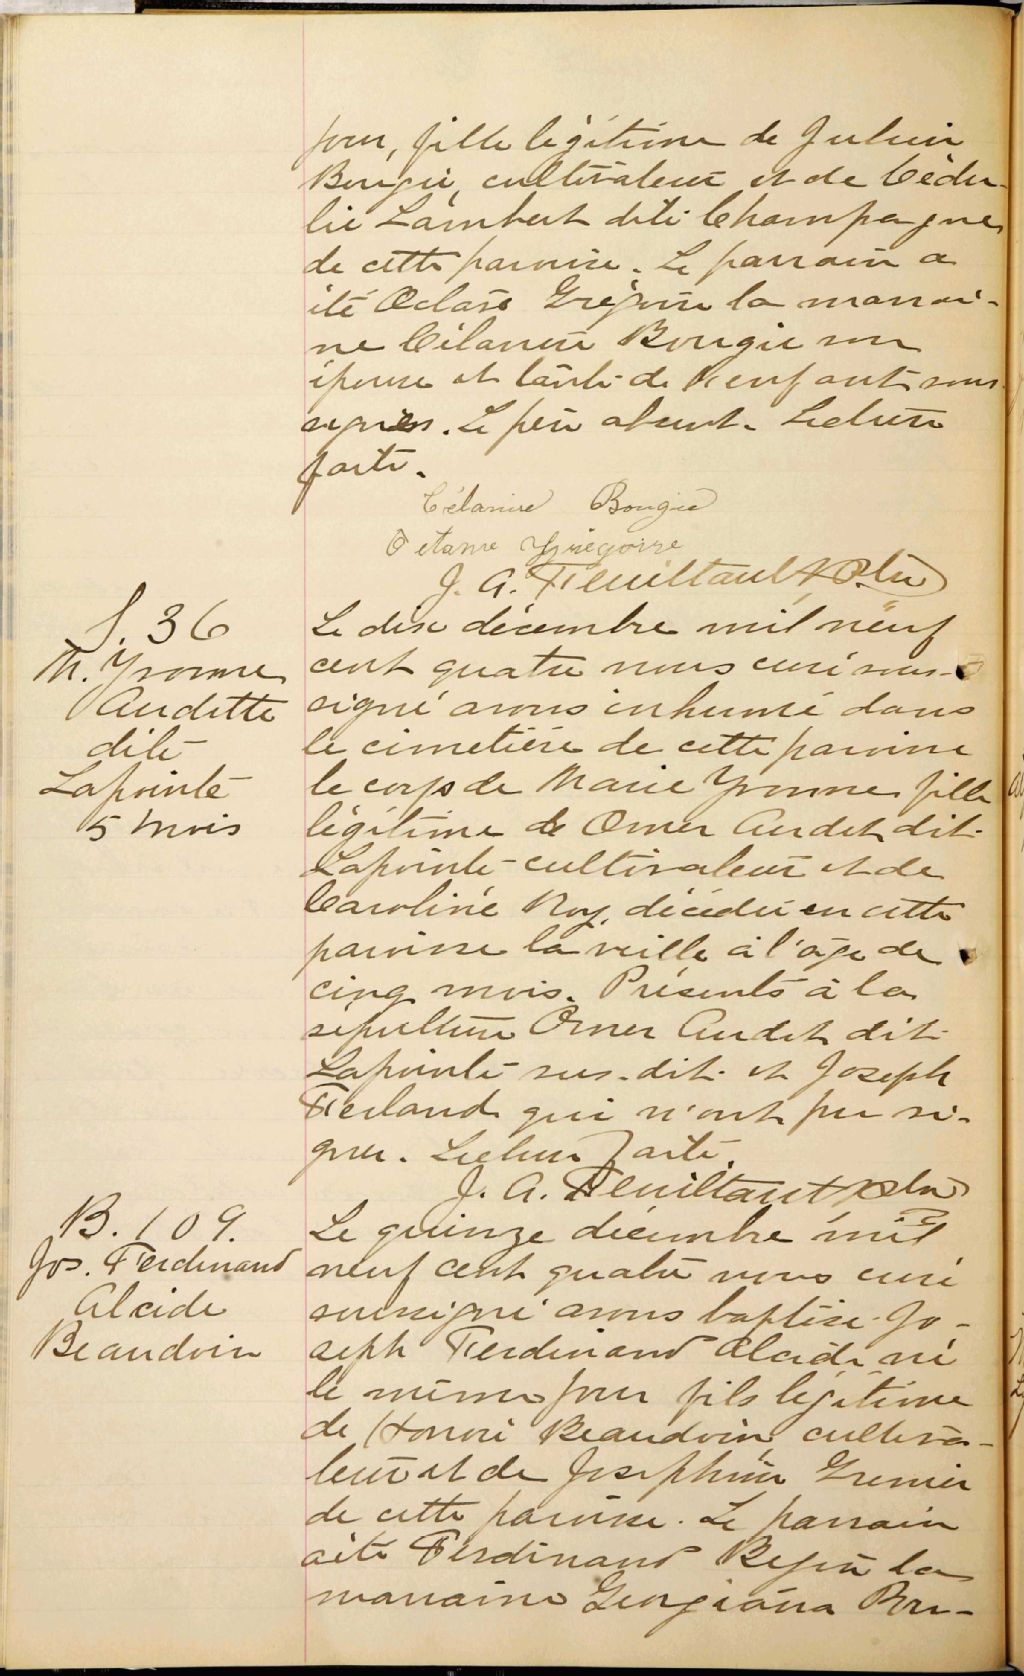 jour, fille légitime de Julien
Bougie, cultivateur et de Cédu-
lie Lambert dite Champagne
de cette paroisse. Le parrain a
été Octave Grégoire la marrai-
ne Célanire Bougie son
épouse et tante de l'enfant sous-
signés. Le père absent. Lecture
faite.
Célanire Bougie
Octave Grégoire
J. A. Feuiltault Ptre
S. 36
M. Yvonne
Audette
dite
Lapointe
5 mois
Le dix décembre mil neuf
cent quatre nous curé sous-
signé avons inhumé dans
le cimetière de cette paroisse
le corps de Marie Yvonne fille
légitime de Omer Audet dit
Lapointe cultivateur et de
Caroline Roy, décédée en cette
paroisse la veille à l'âge de
cinq mois. Présents à la
sépulture Omer Audet dit
Lapointe sus-dit et Joseph
Ferland qui n'ont pu si-
gner. Lecture faite.
J. A. Feuiltault Ptre
B. 109.
Jos. Ferdinand
Alcide
Beaudoin
Le quinze décembre mil
neuf cent quatre nous curé
soussigné avons baptisé Jo-
seph Ferdinand Alcide né
le même jour fils légitime
de Honoré Beaudoin, cultiva-
teur et de Joséphine Grenier
de cette paroisse. Le parrain
a été Ferdinand Bégin la
marraine Georgiana Bou-